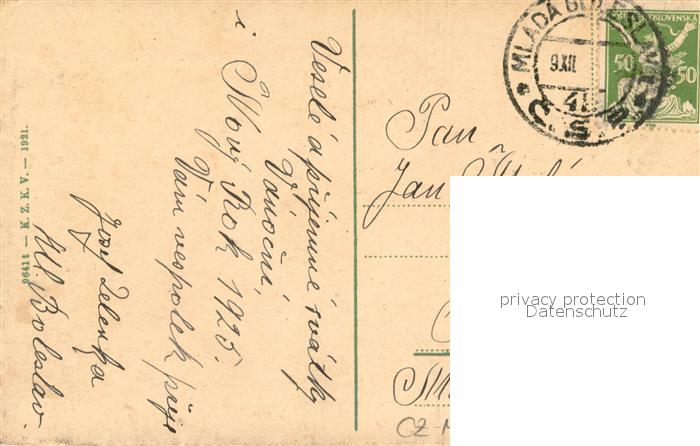 Veselé a příjemné svátky
Vánoční,
i Nový Rok 1925.
Vám vespolek přeje
Josef Zelenka
Ml. Boleslav.
9641t — K. Z. K. V. — 1921.
Pan
Jan
MLADÁ BOLESLAV
9.XII.
ČESKOSLOVENSKÁ
50 50
privacy protection
Datenschutz
CZ